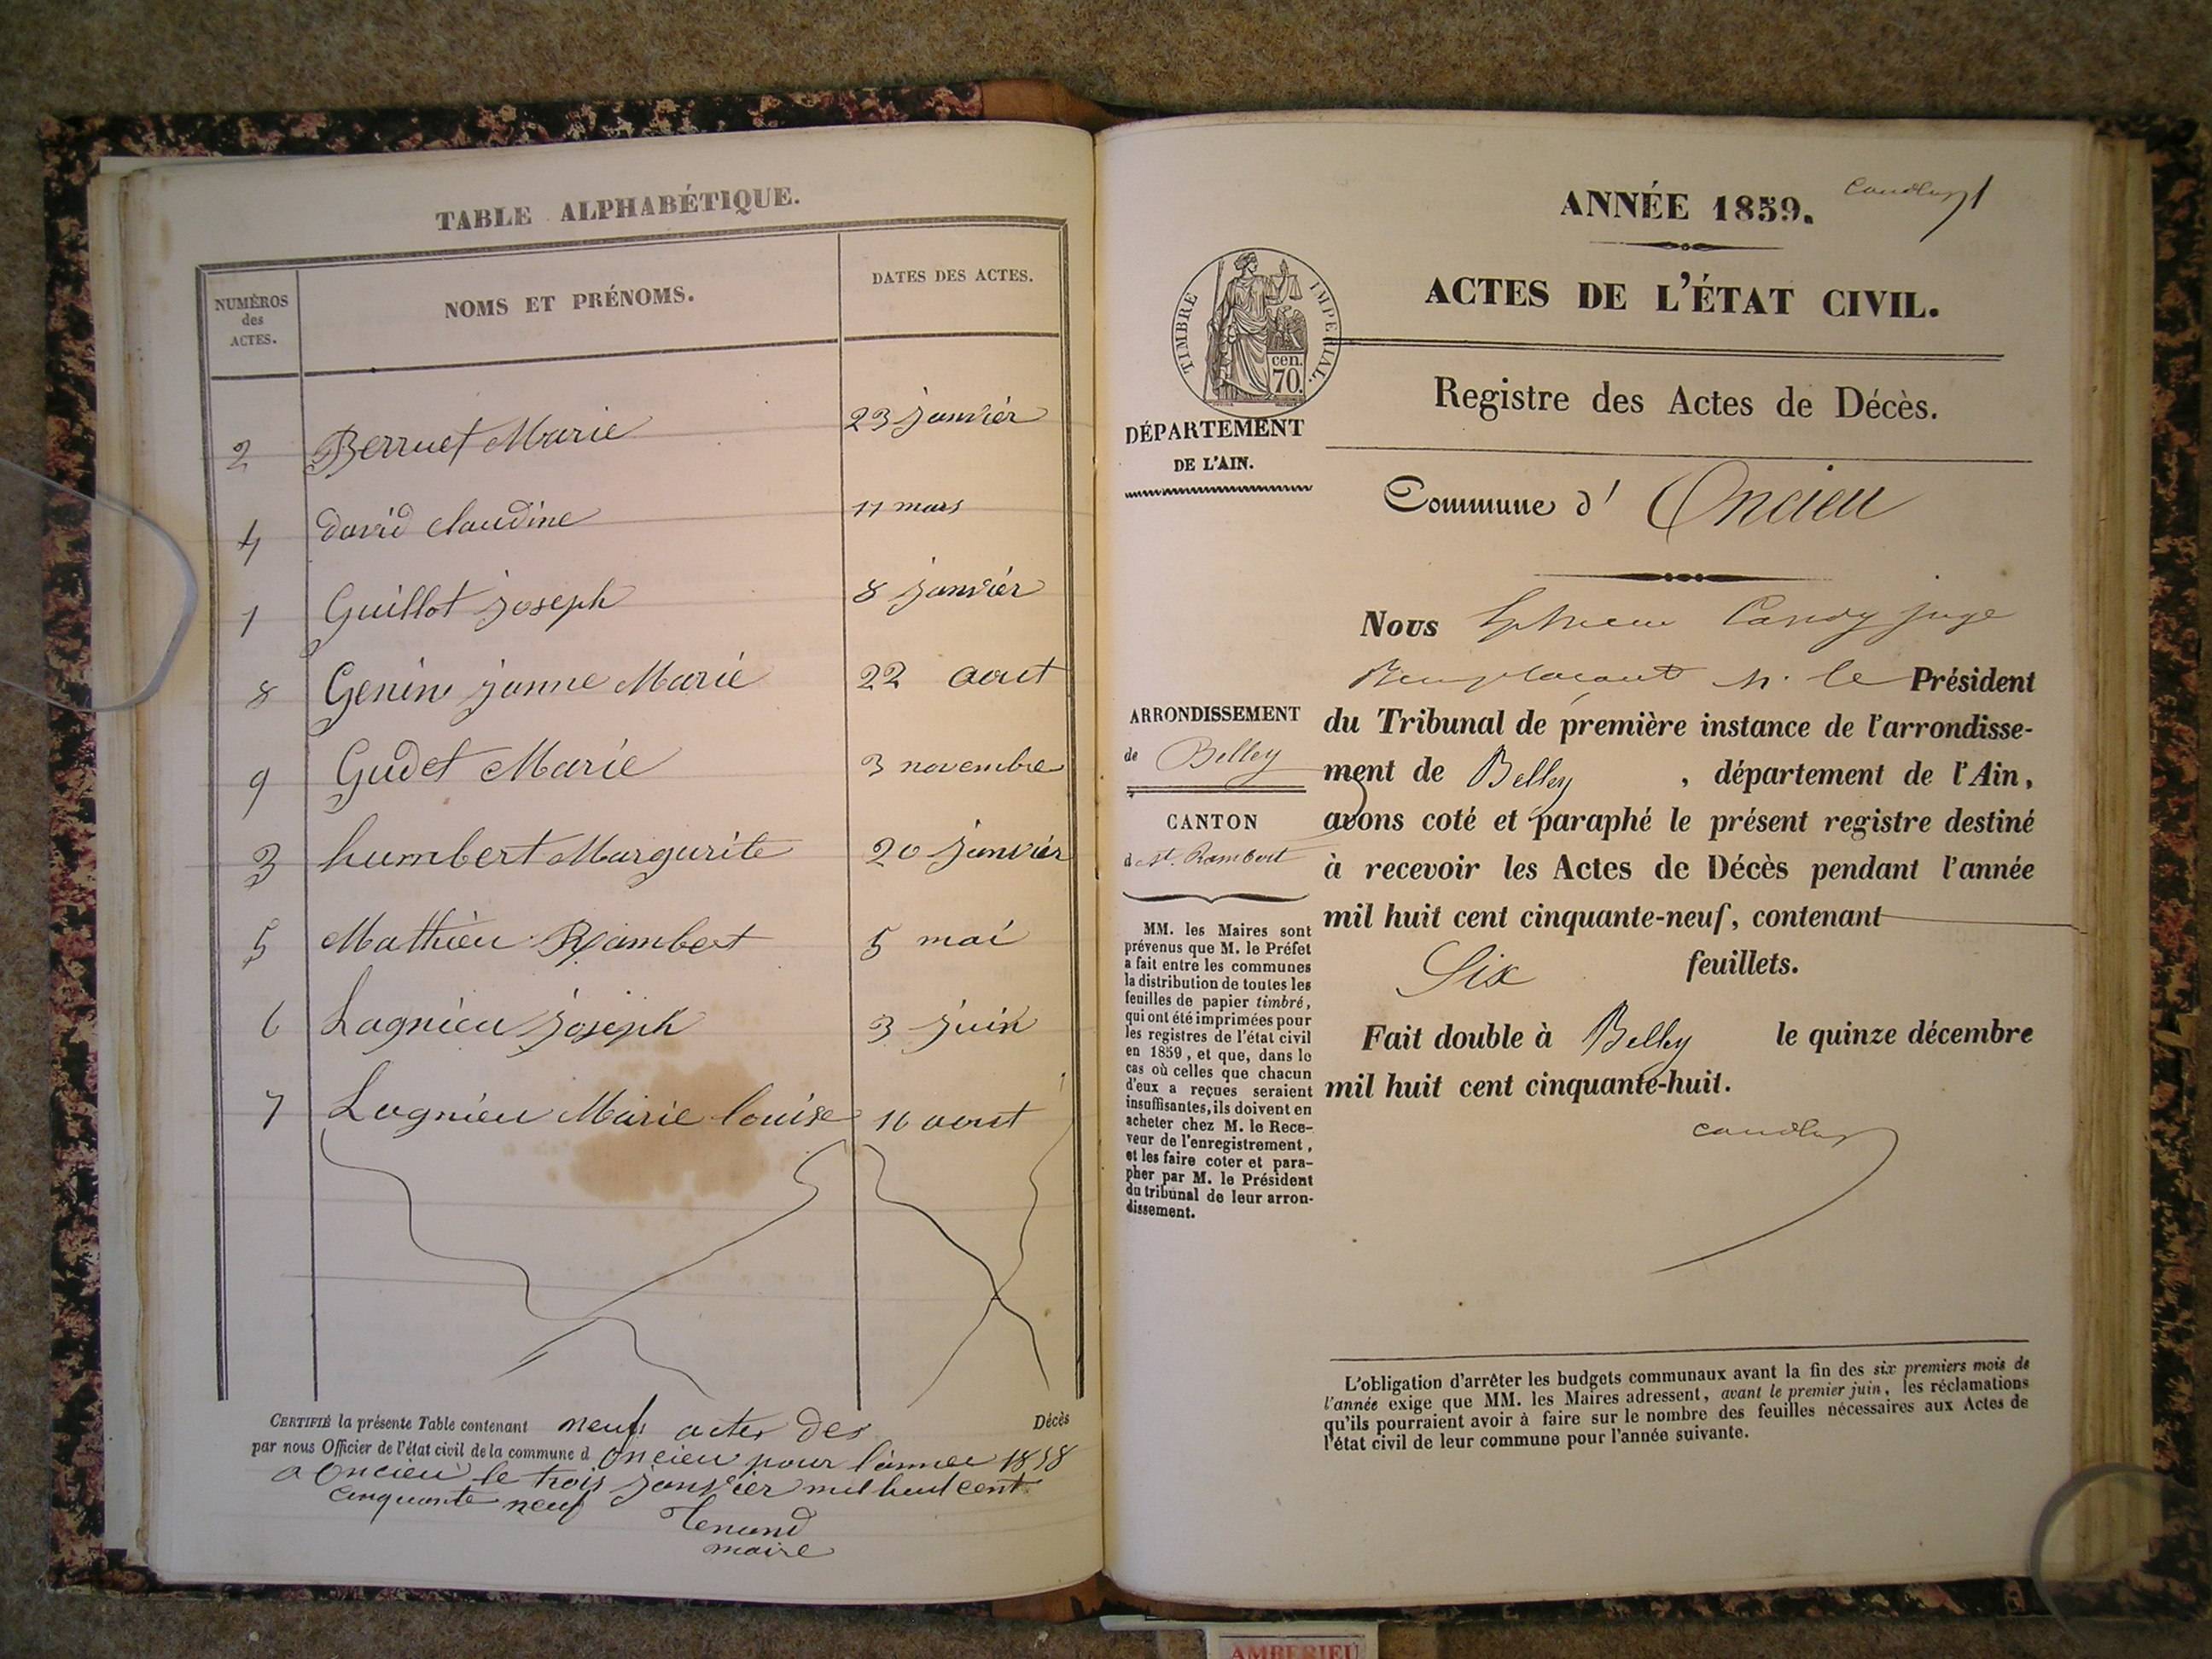 TABLE ALPHABÉTIQUE.
NUMÉROS des ACTES.
NOMS ET PRÉNOMS.
DATES DES ACTES.
2 Berruet Marie 23 janvièr
4 david claudine 11 mars
1 Guillot joseph 8 janvièr
8 Genin janne Marie 22 aout
9 Gudet Marie 3 novembre
3 humbert Margurite 20 janvièr
5 Mathieu Rambert 5 mai
6 Lagnieu joseph 3 juin
7 Lagnieu Marie louise 16 aout
CERTIFIÉ la présente Table contenant neufs actes des Décès
par nous Officier de l'état civil de la commune d Oncieu pour l'annee 1858
a Oncieu le trois janvier mil huit cent
cinquante neuf
maire
ANNÉE 1859.
1
ACTES DE L'ÉTAT CIVIL.
TIMBRE IMPERIAL.
cen.
70.
Registre des Actes de Décès.
DÉPARTEMENT
DE L'AIN.
Commune d' Oncieu
Nous Candy juge
Remplacant M. le Président
du Tribunal de première instance de l'arrondisse-
ment de Belley, département de l'Ain,
avons coté et paraphé le présent registre destiné
à recevoir les Actes de Décès pendant l'année
mil huit cent cinquante-neuf, contenant
Six feuillets.
Fait double à Belley le quinze décembre
mil huit cent cinquante-huit.
ARRONDISSEMENT
de Belley
CANTON
d St. Rambert
MM. les Maires sont
prévenus que M. le Préfet
a fait entre les communes
la distribution de toutes les
feuilles de papier timbré,
qui ont été imprimées pour
les registres de l'état civil
en 1859, et que, dans le
cas où celles que chacun
d'eux a reçues seraient
insuffisantes, ils doivent en
acheter chez M. le Rece-
veur de l'enregistrement,
et les faire coter et para-
pher par M. le Président
du tribunal de leur arron-
dissement.
L'obligation d'arrêter les budgets communaux avant la fin des six premiers mois de
l'année exige que MM. les Maires adressent, avant le premier juin, les réclamations
qu'ils pourraient avoir à faire sur le nombre des feuilles nécessaires aux Actes de
l'état civil de leur commune pour l'année suivante.
AMBERIEU